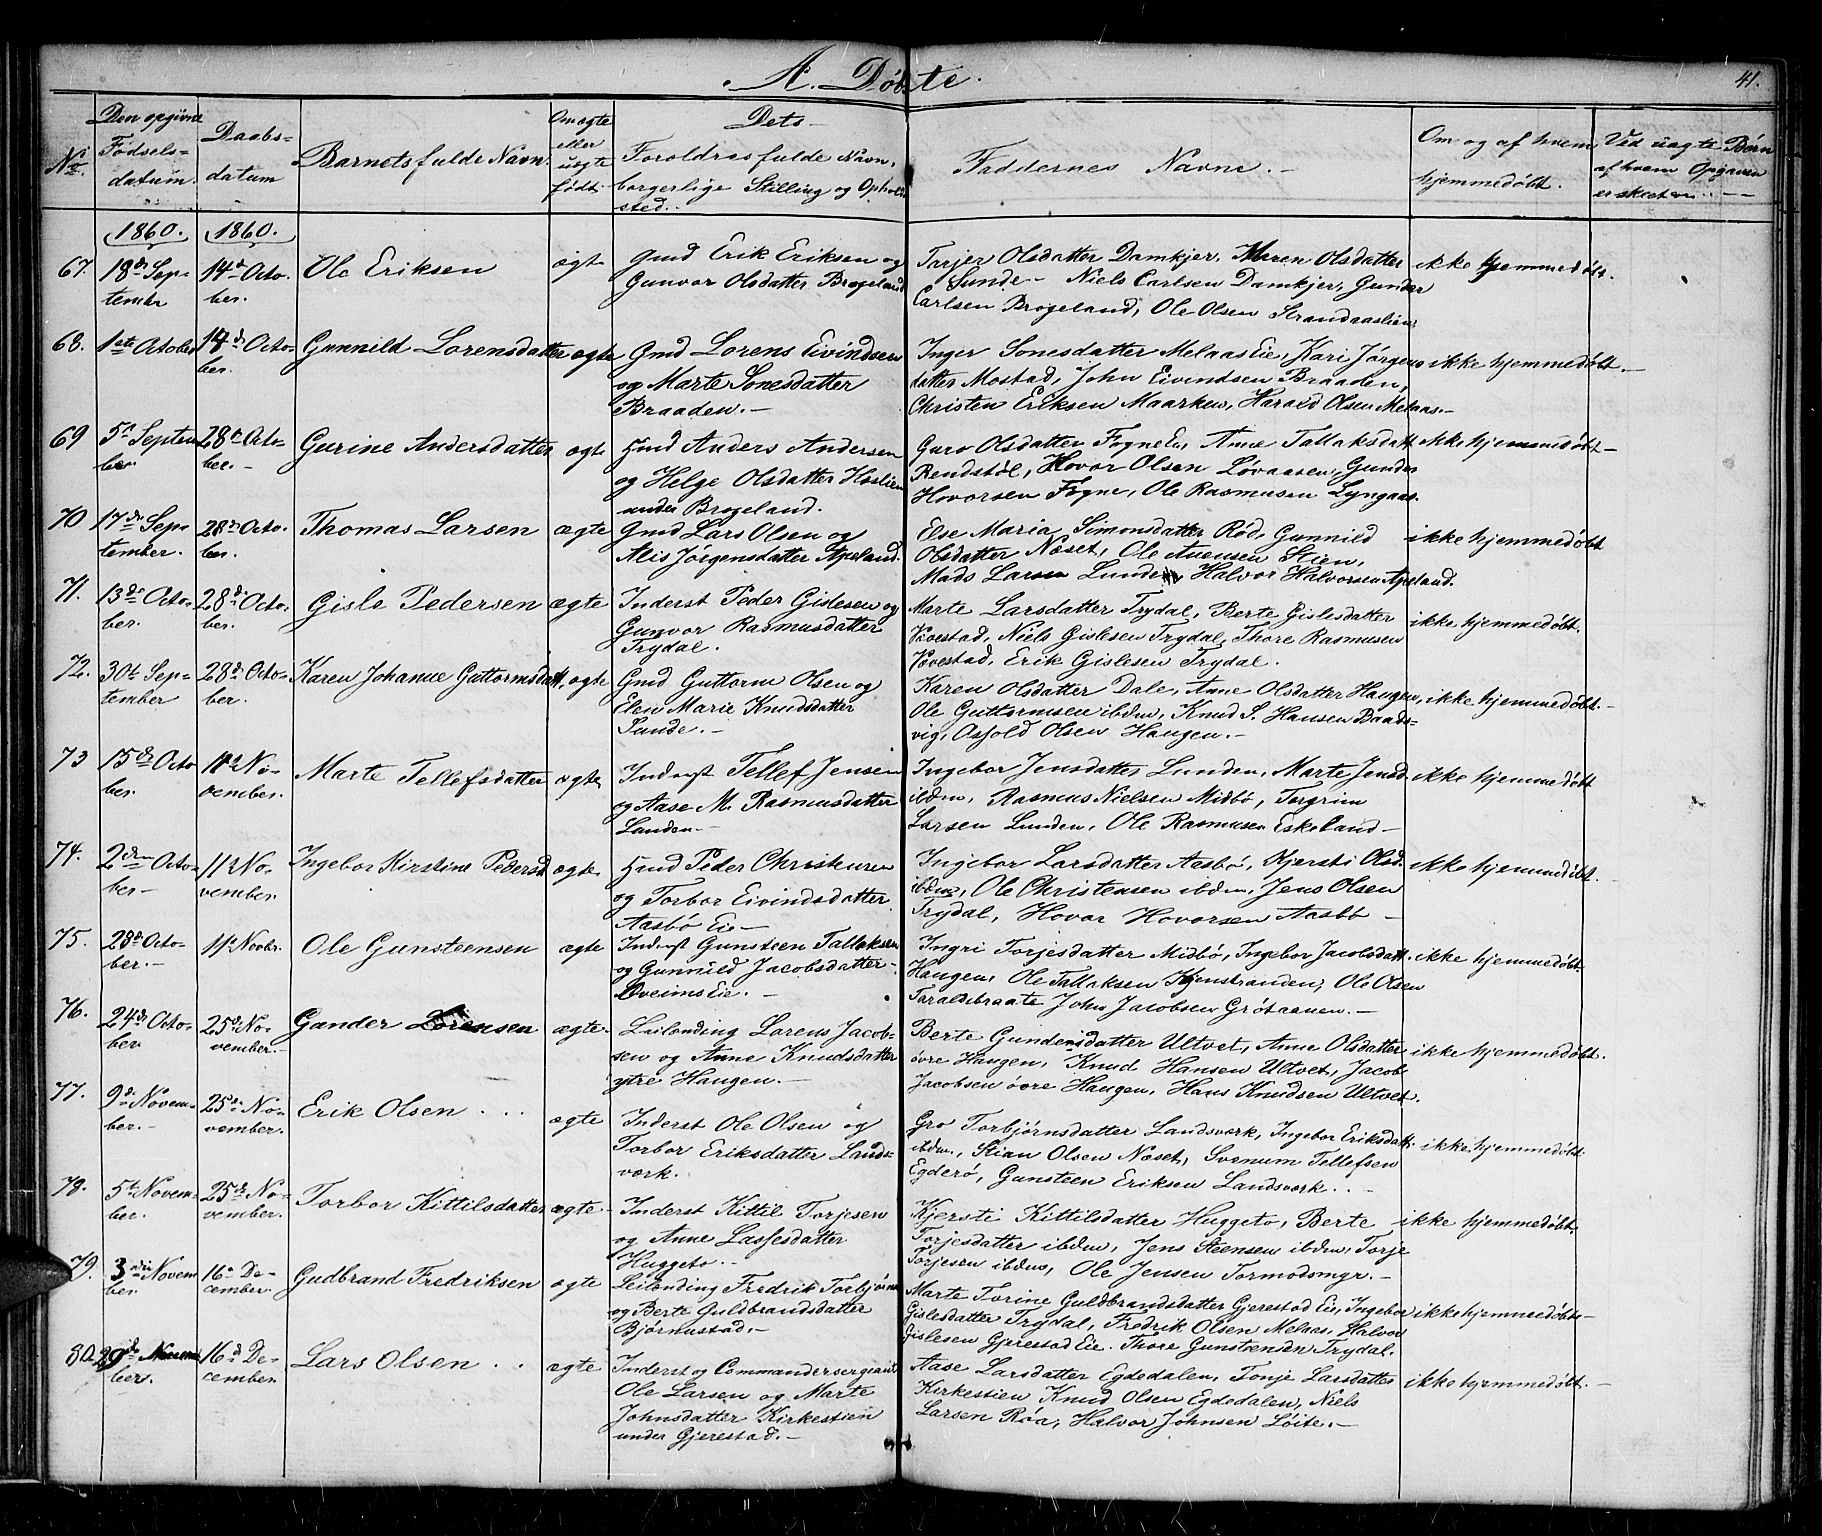 A. Döbte.
41.
No.
Den opgivne Fødsels-datum.
Daabs-datum
Barnets fulde Navn.
Om ægte eller uægte født.
Dets Foreldres fulde Navn, borgerlige Stilling og Opholdsted.
Faddernes Navne.
Om og af hvem hjemmedøbt.
Ved uægte Børn af hvem Opgaven er skeet
1860. 1860.
67. 18de September 14de October. Ole Eriksen ægte Gmd Erik Eriksen og
Gunvor Olsdatter Brogeland
Tarjer Olsdatter Damkjer, Maren Olsdatter
Sunde - Niels Carlsen Damkjer, Gunder
Carlsen Brogeland, Ole Olsen Strandaaslien
ikke hjemmedøbt.
68. 1ste October 14de October. Gunnild Lorensdatter ægte Gmd Lorens Eivindsen
og Marte Sonesdatter
Braaden.-
Inger Sonesdatter Melaas Eie, Kari Jørgens
datter Mostad, John Eivindsen Braaden,
Christen Eriksen Maarken, Harald Olsen Melaas.-
ikke hjemmedøbt.-
69 5te September 28de October.- Gurine Andersdatter ægte Hmd Anders Andersen
og Helge Olsdatter Haslien
under Brogeland.
Guro Olsdatter Fogne Ei, Anne Tallaksdatt
Rendstöl, Hovor Olsen Lövaasen, Gunder
Hovorsen Fogne, Ole Rasmusen Lyngaas.
ikke hjemmedøbt-
70 17de September. 28de October. Thomas Larsen ægte Gmd Lars Olsen og
Alis Jörgensdatter Apeland.
Else Maria Simonsdatter Röd, Gunnild
Olsdatter Næset, Ole Auensen Stien,
Mads Larsen Lunden, Halvor Halvorsen Apeland.
ikke hjemmedøbt
71. 13de October. 28de October. Gisle Pedersen ægte Inderst Peder Gislesen og
Gunvor Rasmusdatter
Trydal.
Marte Larsdatter Trydal, Berte Gislesdatter
Vevestad, Niels Gislesen Trydal, Thore Rasmusen
Vevestad, Erik Gislesen Trydal.
ikke hjemmedøbt.
72. 30te September 28de October. Karen Johanne Guttormsdatt. ægte Gmd Guttorm Olsen og
Elen Marie Knudsdatter
Sunde.-
Karen Olsdatter Dale, Anne Olsdatter Haugen,
Ole Guttormsen ibdm, Knud S. Hansen Baads-
vig, Osfold Olsen Haugen.-
ikke hjemmedøbt.-
73 15de October. 11te November. Marte Tellefsdatter ægte Inderst Tellef Jensen
og Aase M. Rasmusdatter
Lunden.-
Ingebor Jensdatter Lunden, Marte Jensd.
ibdm, Rasmus Nielsen Midbö, Torgrim
Larsen Lunden, Ole Rasmusen Eskeland-
ikke hjemmedøbt
74. 2den October- 11te November. Ingebor Kirstine Pedersd ægte. Hmd Peder Christensen
og Torbor Eivindsdatter
Aasbö Eie-
Ingebor Larsdatter Aasbö, Kjersti Olsd.
ibdm, Ole Christensen ibdm, Jens Olsen
Trydal, Hovor Hovorsen Aasbö-
ikke hjemmedøbt.
75. 28de October.- 11te Novbr. Ole Gunsteensen ægte Inderst Gunsteen Tallaksen
og Gunnild Jacobsdatter
Sveims Eie.-
Ingri Torjesdatter Midbö, Ingebor Jacobsdatt.
Haugen, Ole Tallaksen Kjenstranden, Ole Olsen
Taraldsbraate John Jacobsen Grötaaenen.-
ikke hjemmedøbt.
76. 24de October 25de November.- Gunder Lorensen ægte. Leilending Lorens Jacob-
sen og Anne Knudsdatter
ytre Haugen.-
Berte Gundersdatter Ultvet, Anne Olsdatter
övre Haugen, Knud Hansen Ultvet, Jacob
Jacobsen övre Haugen, Hans Knudsen Ultvet.
ikke hjemmedøbt.
77. 9de November.- 25de November. Erik Olsen ægte Inderst Ole Olsen og
Torbor Eriksdatter Lands-
værk.
Gro Torbjörnsdatter Landsværk, Ingebor Eriksdatt.
ibdm, Stian Olsen Næset, Svenum Tellefsen
Egderö, Gunsteen Eriksen Landsværk.-
ikke hjemmedøbt.
78. 5te November. 25de November. Torbor Kittilsdatter ægte Inderst Kittil Torjesen
og Anne Lassesdatter
Huggeto.-
Kjersti Kittilsdatter Huggeto, Berte
Torjesdatter ibdm, Jens Steensen ibdm, Torje
Torjesen ibdm, Ole Jensen Tormodsmyr.-
ikke hjemmedøbt.
79. 3die November. 16de December. Gudbrand Fredriksen ægte Leilending Fredrik Torbjörns.
og Berte Guldbrandsdatter
Björnustad.-
Marte Torine Guldbrandsdatter Gjerestad Eie, Ingebor
Gislesdatter Trydal, Fredrik Olsen Melaas, Halvor
Gislesen Gjerestad Eie. Thore Gunsteensen Trydal.
ikke hjemmedøbt.
80. 29de November. 16de December. Lars Olsen ægte Inderst og Commandersergeant
Ole Larsen og Marte
Johnsdatter Kirkestien
under Gjerestad.-
Aase Larsdatter Egdedalen, Tonje Larsdatter
Kirkestien Knud Olsen Egdedalen, Niels
Larsen Röa, Halvor Johnsen Löite.-
ikke hjemmedøbt.-